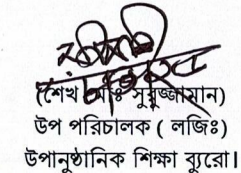 (শেখ মোঃ সুরুজ্জামান)
উপ পরিচালক ( লজিঃ)
উপানুষ্ঠানিক শিক্ষা ব্যুরো।